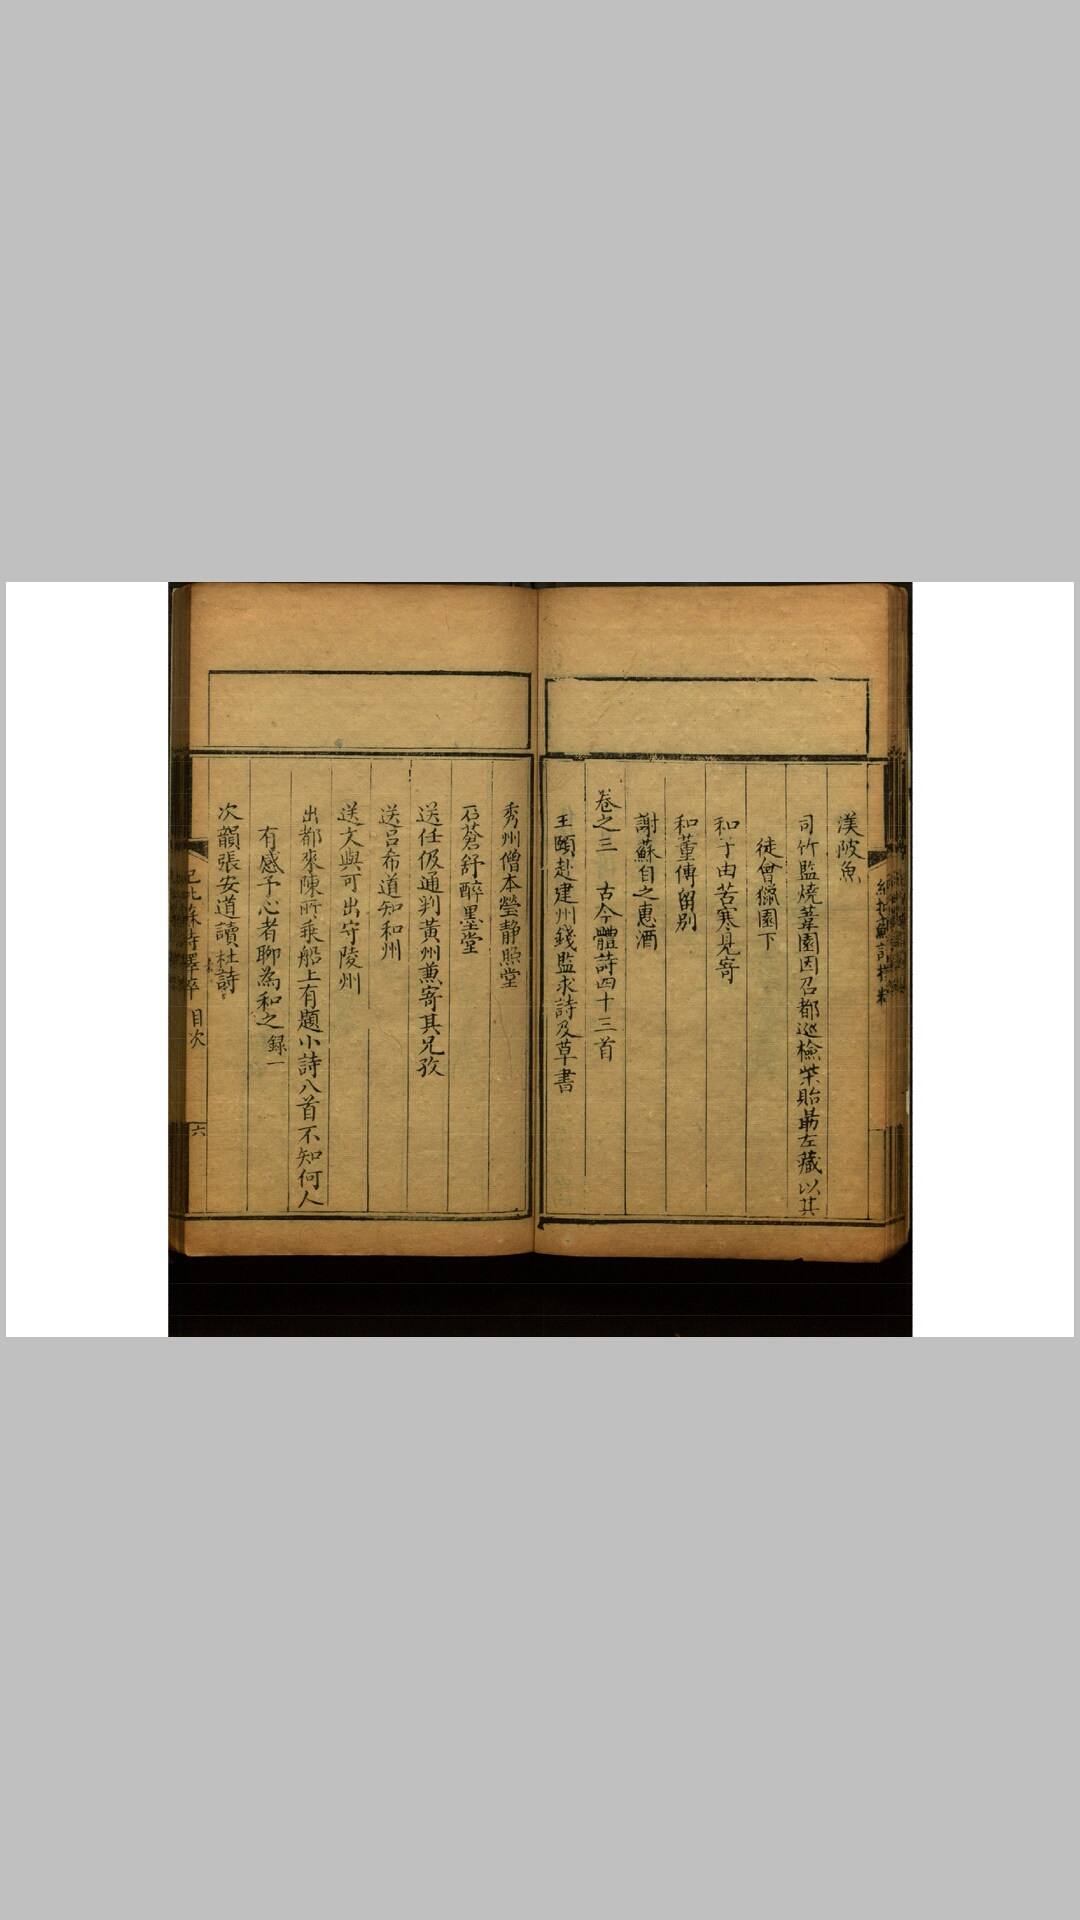 渼陂魚
司竹監燒葦園因召都巡檢柴貽勗左藏以其
徒會獵園下
和子由苦寒見寄
和董傳留別
謝蘇自之惠酒
卷之三 古今體詩四十三首
王頤赴建州錢監求詩及草書
秀州僧本瑩靜照堂
石蒼舒醉墨堂
送任伋通判黃州兼寄其兄孜
送呂希道知和州
送文與可出守陵州
出都來陳所乘船上有題小詩八首不知何人
有感予心者聊為和之 録一
次韻張安道讀杜詩
目次
六